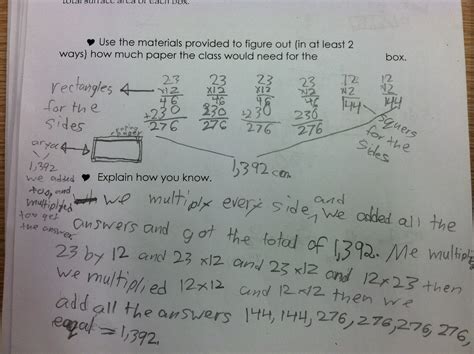 total surface area of each box.
♥ Use the materials provided to figure out (in at least 2
ways) how much paper the class would need for the box.
rectangles
for the
sides
23 23 23 23 12 12
x12 x12 x12 x12 x12 x12
46 46 46 46 144 144
+230 230 +230 230
276 276 276 276
squers
for the
sides
1,392 cm
area
1,392
we added
too, and
multiplyed
too get
the answer
♥ Explain how you know.
we multiply every side, and we added all the
answers and got the total of 1,392. Me multiply
23 by 12 and 23 x12 and 23 x12 and 12x23 then
we multiplied 12x12 and 12x12 then we
add all the answers 144, 144, 276, 276, 276, 276,
equal = 1,392